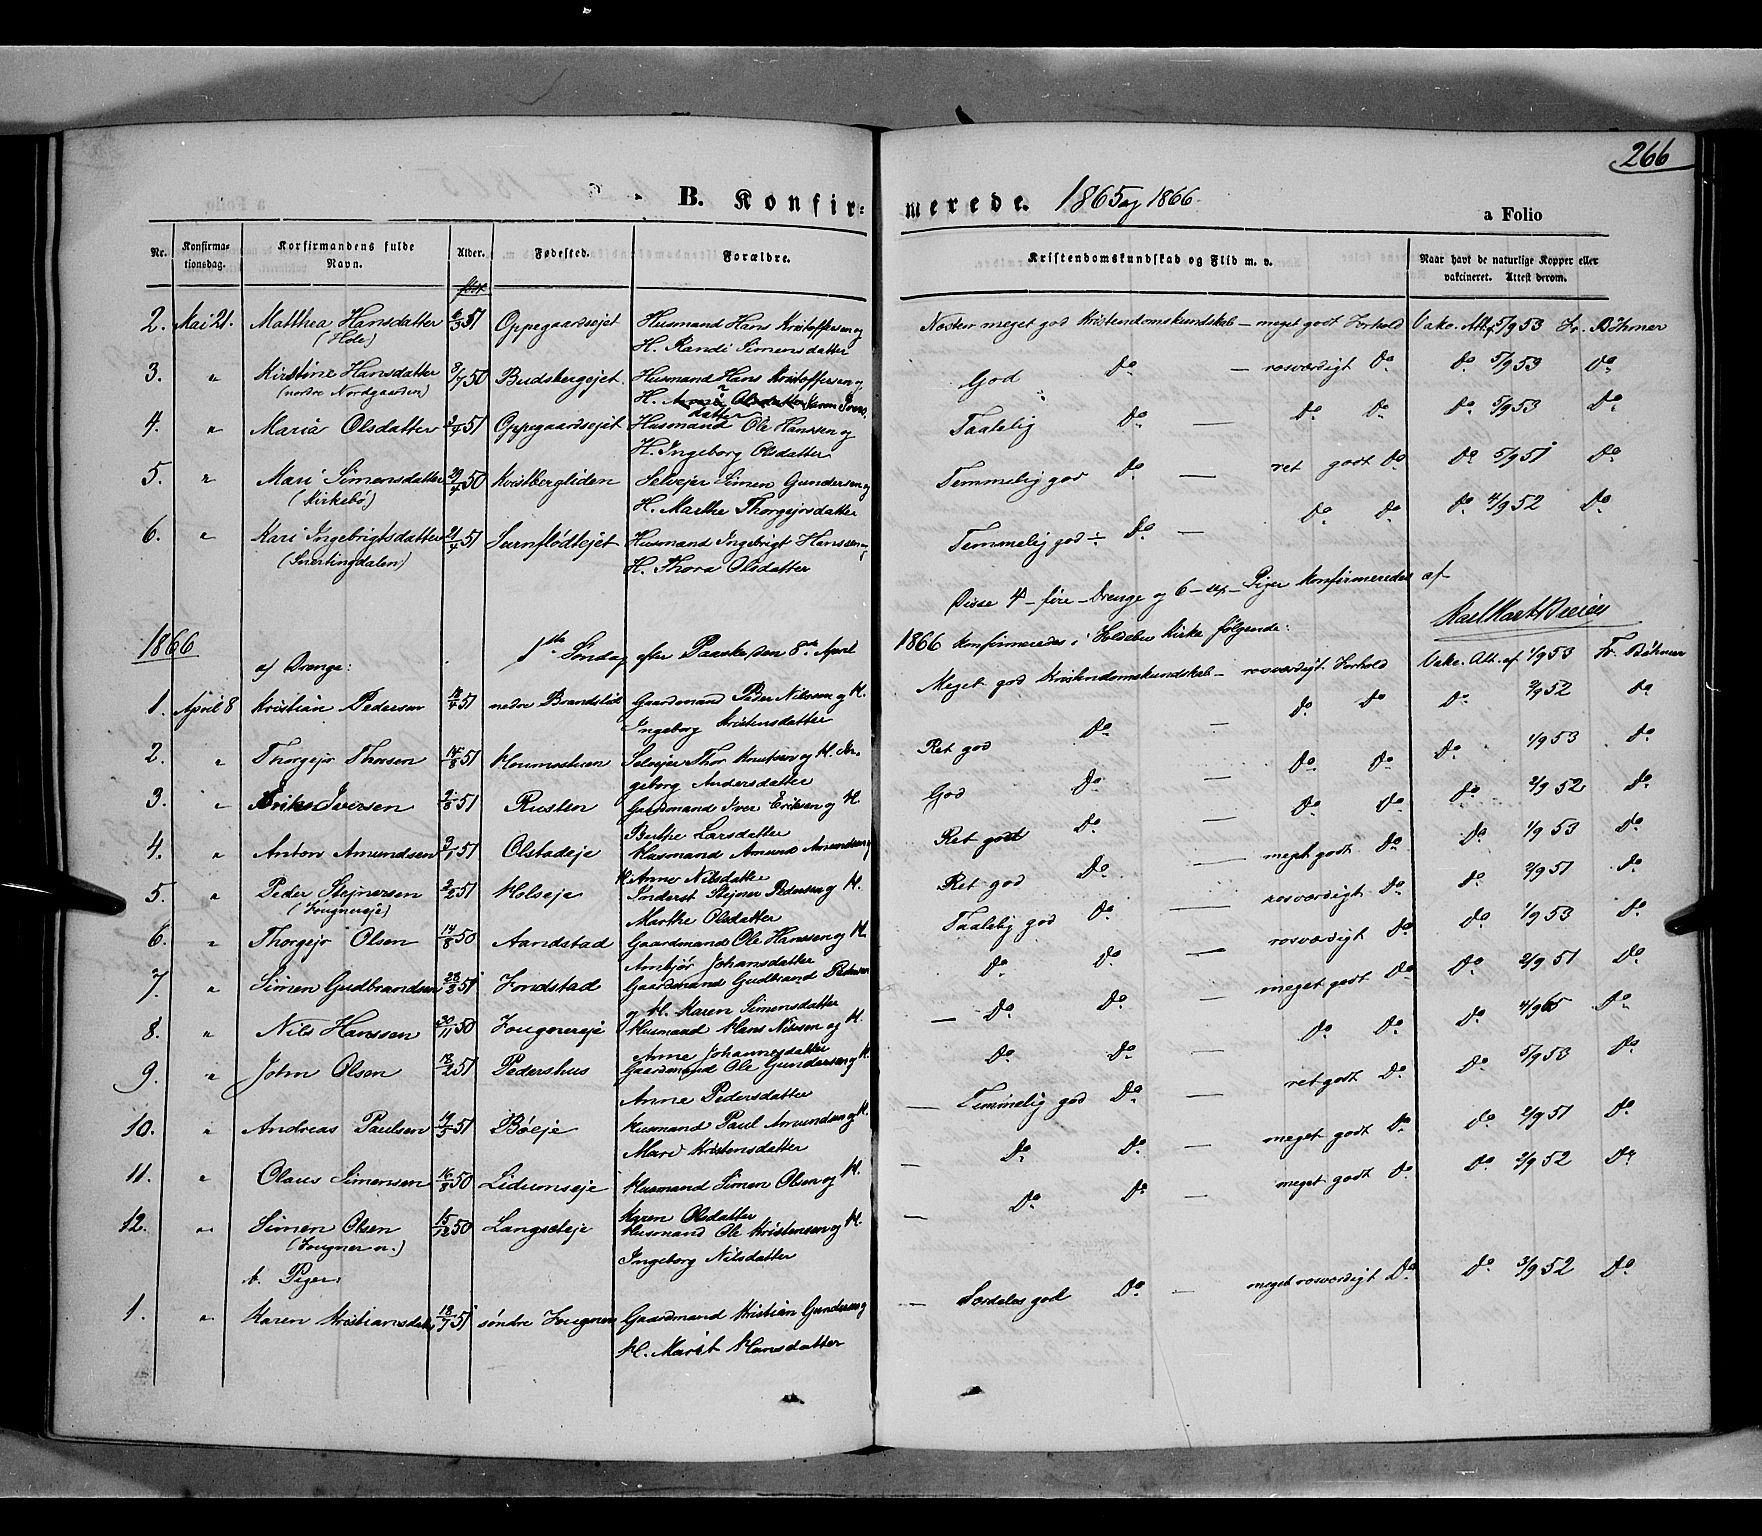 266
B. Konfirmerede. 1865 og 1866
a Folio
Nr. Konfirmationsdag. Konfirmandens fulde Navn. Alder. Fødested. Forældre. Kristendomskundskab og Flid m. v. Naar havt de naturlige Kopper eller vakcineret. Attest derom.
født
2. Mai 21. Matthea Hansdatter 51 Oppegaardsejet Husmand Hans Kristoffersen og Næsten meget god Kristendomskundskab — meget godt Forhold Vakc. Att. 5/9 53 Fr. Böhmer
(Hole) H. Randi Simensdatter
3. " Kirstine Hansdatter 50 Budsbergejet. Husmand Hans Kristoffersen og God Do — rosværdigt Do Do 5/9 53 Do
(nordre Nordgaarden) H. Olsdatter Karen Ivers
datter
4. " Maria Olsdatter 51 Oppegaardsejet Husmand Ole Hanssen og Taalelig Do — Do Do Do 5/9 53 Do
H. Ingeborg Olsdatter
5. " Mari Simensdatter 29/4 50 Kvistbergliden Selvejer Simen Gundersen og Temmelig god Do — ret godt Do Do 5/9 51 Do
(Kirkebö) H. Marthe Thorgejrsdatter
6. " Kari Ingebrigtsdatter 21/4 51 Husmand Ingebrigt Hanssen og Temmelig god ÷ Do — Do Do Do 4/9 52 Do
(Snertingdalen) H. Thora Olsdatter
Disse 4 – fire – Drenge og 6 – sex – Piger konfirmeredes af
1866 1ste Søndag efter Paaske, den 8de April 1866 konfirmeredes i Kirke følgende:
a) Drenge:
1. April 8 Kristian Pedersen 51 nedre Brandstad Gaardmand Peder Nilssen og H. Meget god Kristendomskundskab – rosværdigt Forhold Vakc. Att. af 1/9 53 Fr. Böhmer
Ingeborg Kristensdatter
2. " Thorgejr Thorsen 14/8 51 Selvejer Thor Knutsen og H. In- Ret god Do — Do Do Do 2/9 52 Do
geborg Andersdatter
3. " Erik Iversen 2/8 51 Rusten Gaardmand Iver Eriksen og H. God Do — Do Do Do 1/9 53 Do
Berthe Larsdatter
4. " Anton Amundsen 3/1 51 Olstadeje Husmand Amund Amundsen og Ret godt Do — Do Do Do 2/9 52 Do
H. Anne Nilsdatter
5. " Peder Stejnersen 51 Holseje Inderst Stejner Pedersen og H. Ret god Do — meget godt Do Do 1/9 53 Do
(Fougnereje) Marthe Olsdatter
6. " Thorgejr Olsen 14/8 50 Aandstad Gaardmand Ole Hanssen og H. Taalelig god Do — rosværdigt Do Do 2/9 51 Do
Ambjør Johansdatter
7. " Simen Gudbrandsen 51 Fondstad Gaardmand Gudbrand Pedersen Do Do — rosværdigt Do Do 1/9 53 Do
og H. Karen Simensdatter
8. " Nils Hanssen 20/11 50 Fougnereje Husmand Hans Nilsen og H. — Do Do — meget godt Do Do 2/9 51 Do
Anne Johannesdatter
9. " John Olsen 51 Pedershus Gaardmand Ole Gundersen og H. Do Do — Do Do Do 4/9 65 Do
Anne Pedersdatter
10. " Andreas Paulsen 19/3 51 Böeje Husmand Paul Amundsen og H. — Temmelig god Do — ret godt Do Do 5/9 53 Do
Mari Kristensdatter
11. " Olaus Simensen 16/8 50 Lidumseje Husmand Simen Olsen og H. — Do Do — meget godt Do Do 2/9 51 Do
Karen Olsdatter
12. " Simen Olsen 15/12 50 Langseteje Husmand Ole Kristensen og H. — Do Do — meget godt Do Do 2/9 52 Do
(Fougner n.) Ingeborg Nilsdatter
b. Piger:
1. " Karen Kristiansdatter 18/7 51 søndre Fougner Gaardmand Kristian Gundersen og — Særdeles god Do — meget rosværdigt Do Do 3/9 52 Do
H. Marit Hansdatter